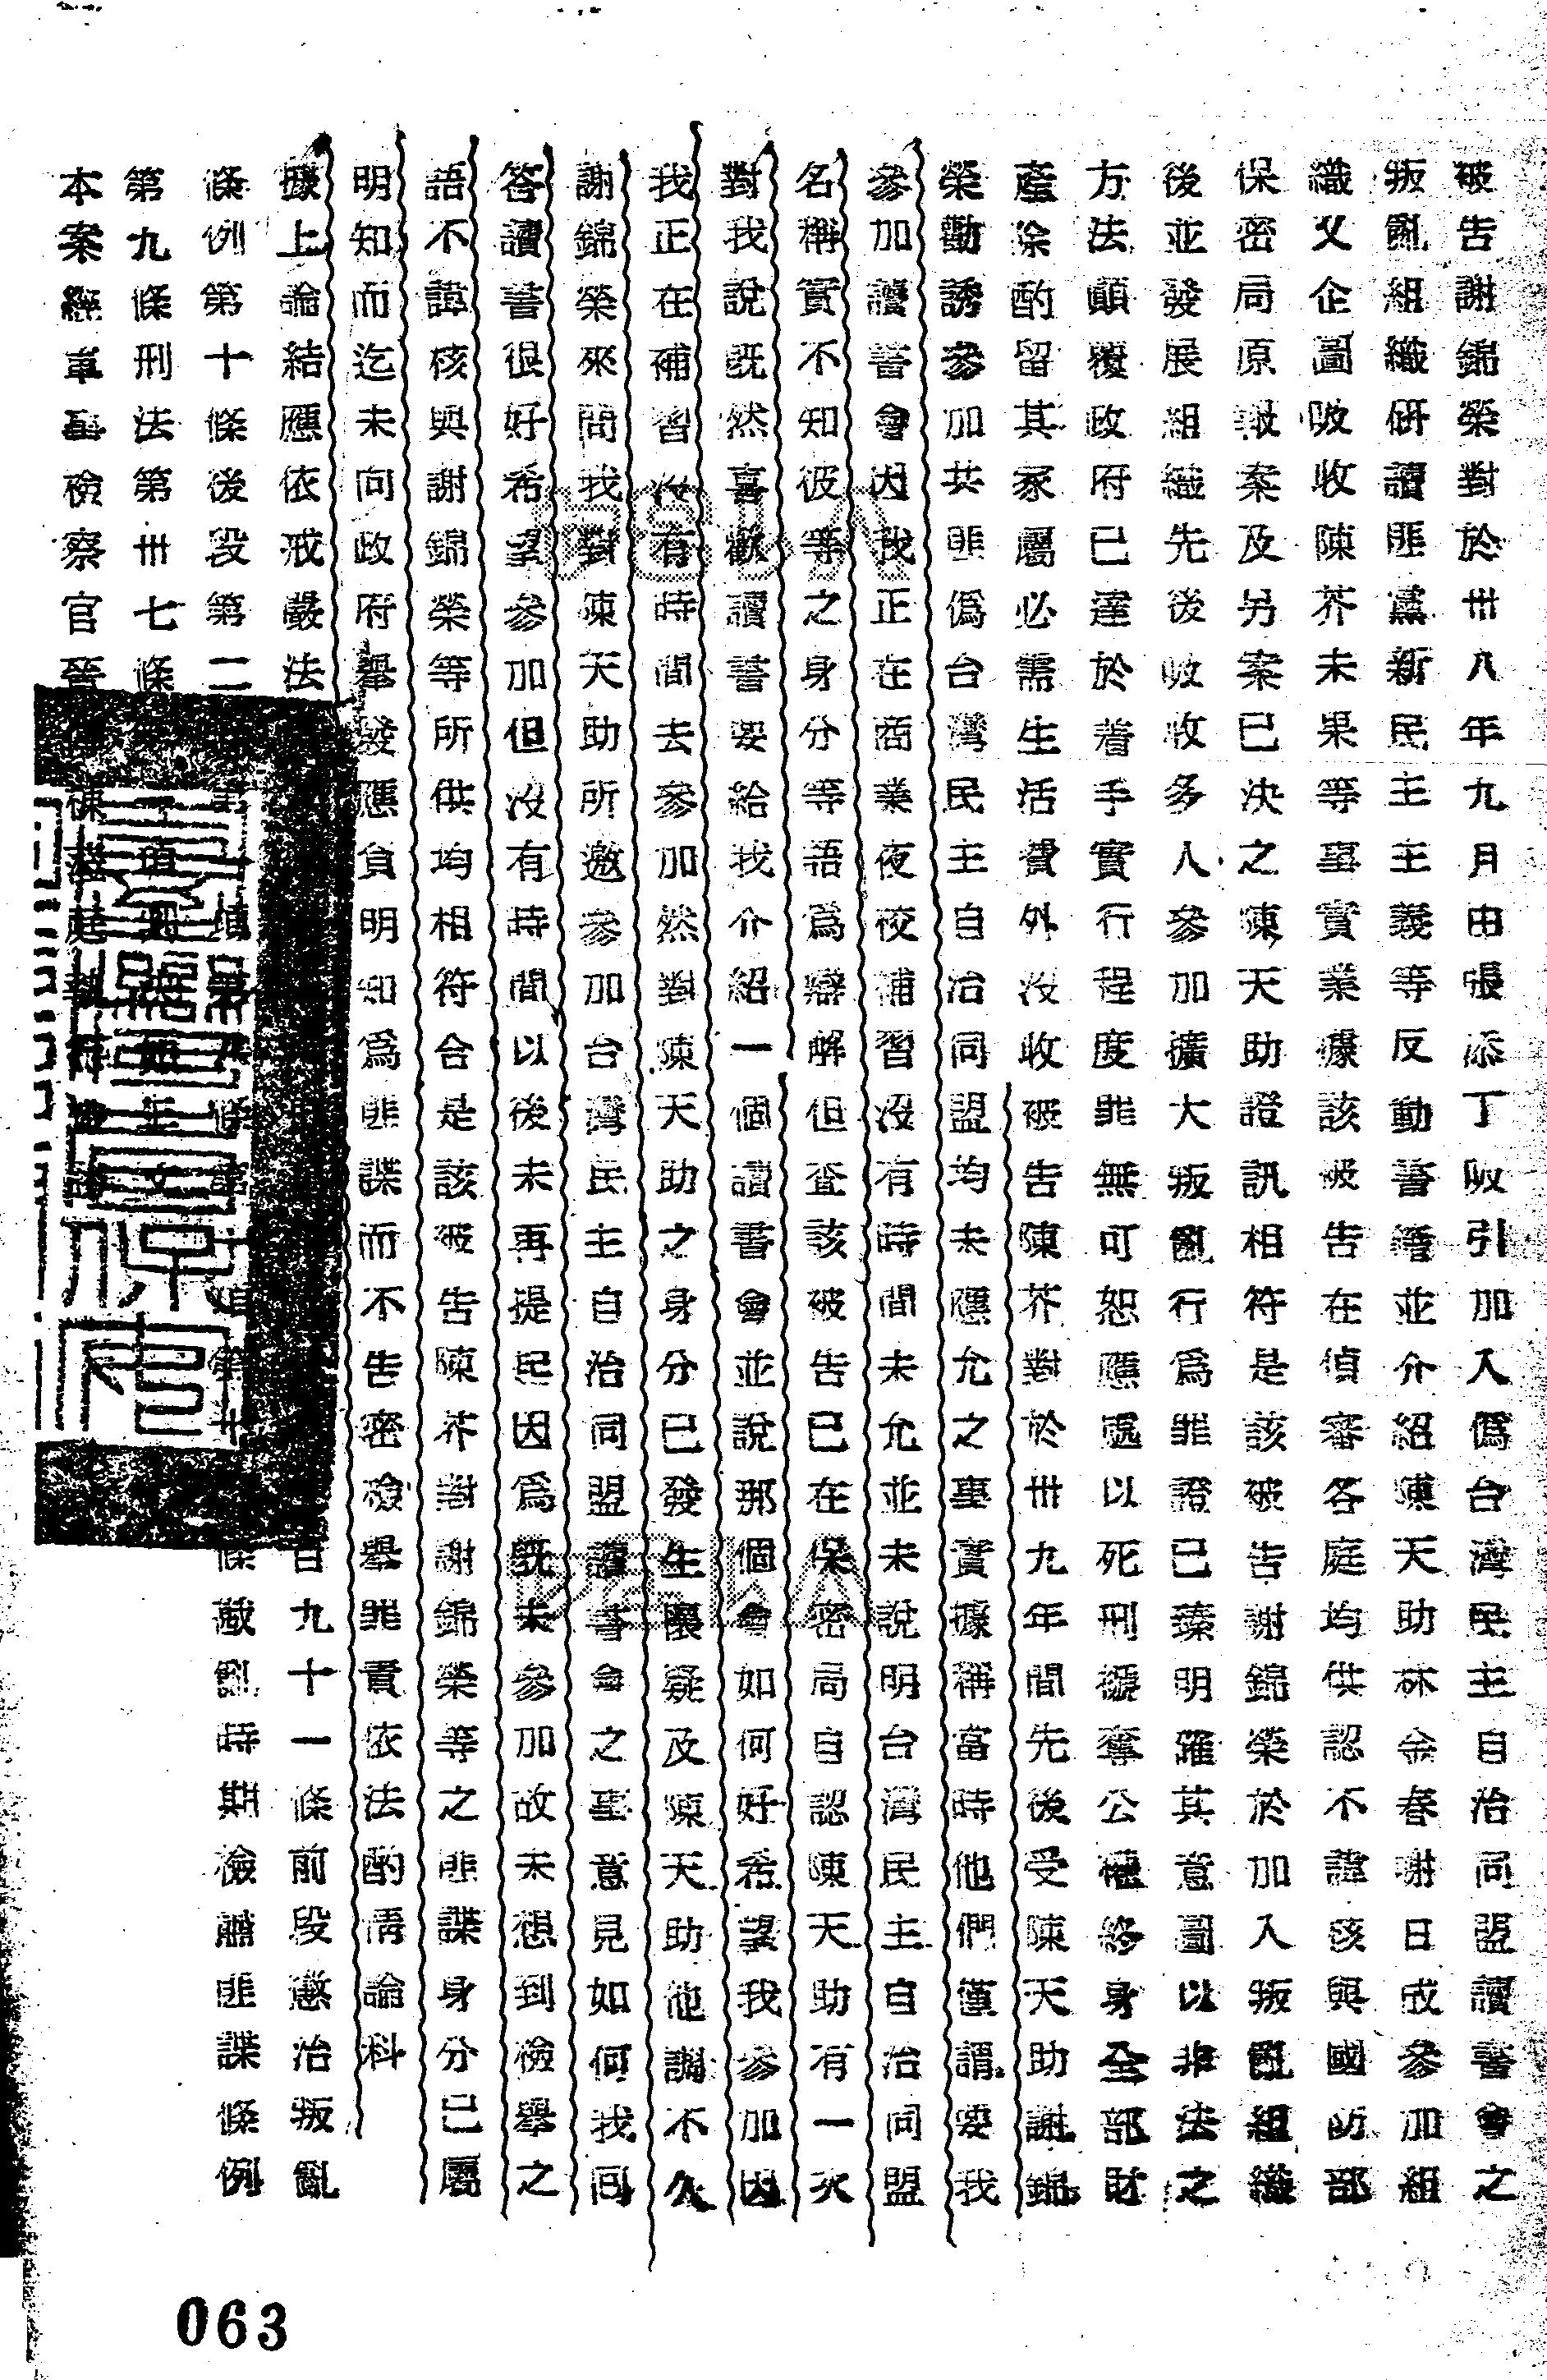 被告謝錦榮對於卅八年九月由張添丁吸引加入偽台灣民主自治同盟讀書會之
叛亂組織研讀匪黨新民主主義等反動書籍並介紹陳天助林金春謝日成參加組
織又企圖吸收陳芥未果等事實業據該被告在偵審各庭均供認不諱核與國防部
保密局原報案及另案已決之陳天助證訊相符是該被告謝錦榮於加入叛亂組織
後並發展組織先後收收多人參加擴大叛亂行為罪證已臻明確其意圖以非法之
方法顛覆政府已達於着手實行程度罪無可恕應處以死刑褫奪公權終身全部財
產除酌留其家屬必需生活費外沒收被告陳芥對於卅九年間先後受陳天助謝錦
榮勸誘參加共匪偽台灣民主自治同盟均未應允之事實據稱當時他們僅謂要我
參加讀書會因我正在商業夜校補習沒有時間未允並未說明台灣民主自治同盟
名稱實不知彼等之身分等語為辯解但查該被告已在保密局自認陳天助有一次
對我說既然喜歡讀書要給我介紹一個讀書會並說那個會如何好希望我參加因
我正在補習沒有時間去參加然對陳天助之身分已發生懷疑及陳天助他調不久
謝錦榮來問我對陳天助所邀參加台灣民主自治同盟讀書會之事意見如何我回
答讀書很好希望參加但沒有時間以後未再提起因為既未參加故未想到檢舉之
語不諱核與謝錦榮等所供均相符合是該被告陳芥對謝錦榮等之匪諜身分已屬
明知而迄未向政府舉發應負明知為匪諜而不告密檢舉罪責依法酌情論科
據上論結應依戒嚴法 百九十一條前段懲治叛亂
條例第十條後段第二 條 第 條戡亂時期檢肅匪諜條例
第九條刑法第卅七條 項
本案經軍事檢察官
063